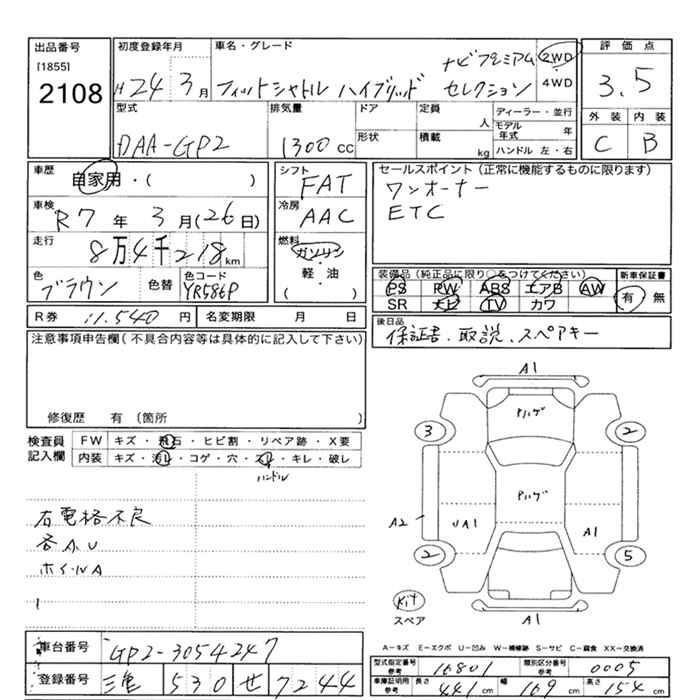 出品番号 初度登録年月 車名・グレード 評価点
[1855]
2108
H24年3月 フィットシャトル ハイブリッド ナビプレミアムセレクション 2WD・4WD 3.5
型式 排気量 ドア 定員 ディーラー・並行 外装 内装
人 モデル年式 年
DAA-GP2 1300cc 形状 積載 kg ハンドル 左・右 C B
車歴 自家用・( ) シフト FAT セールスポイント(正常に機能するものに限ります)
ワンオーナー
ETC
車検 R7年3月(26日) 冷房 AAC
走行 8万4千218km 燃料 ガソリン・軽・油 ( )
色 ブラウン 色替 色コード YR586P
装備品(純正品に限り○をつけてください) 新車保証書
PS PW ABS エアB AW 有・無
SR TV カワ
R券 11,540円 名変期限 月 日 後日品
保証書、取説、スペアキー
注意事項申告欄(不具合内容等は具体的に記入して下さい)
修復歴 有(箇所 )
検査員記入欄 FW キズ・飛石・ヒビ割・リペア跡・X要
内装 キズ・汚レ・コゲ・穴・スレ・キレ・破レ
ハンドル
右電格不良
各A.U
ホイールA
A1
3 2
A2 UA1 A1
2 5
スペア
A1
車台番号 GP2-3054247
登録番号 三重 530 せ 7244
A-キズ E-エクボ U-凹み W-補修跡 S-サビ C-腐食 XX-交換済
型式指定番号 参考 16801 類別区分番号 参考 0005
車庫証明用 参考 長さ 441cm 幅 169cm 高さ 154cm